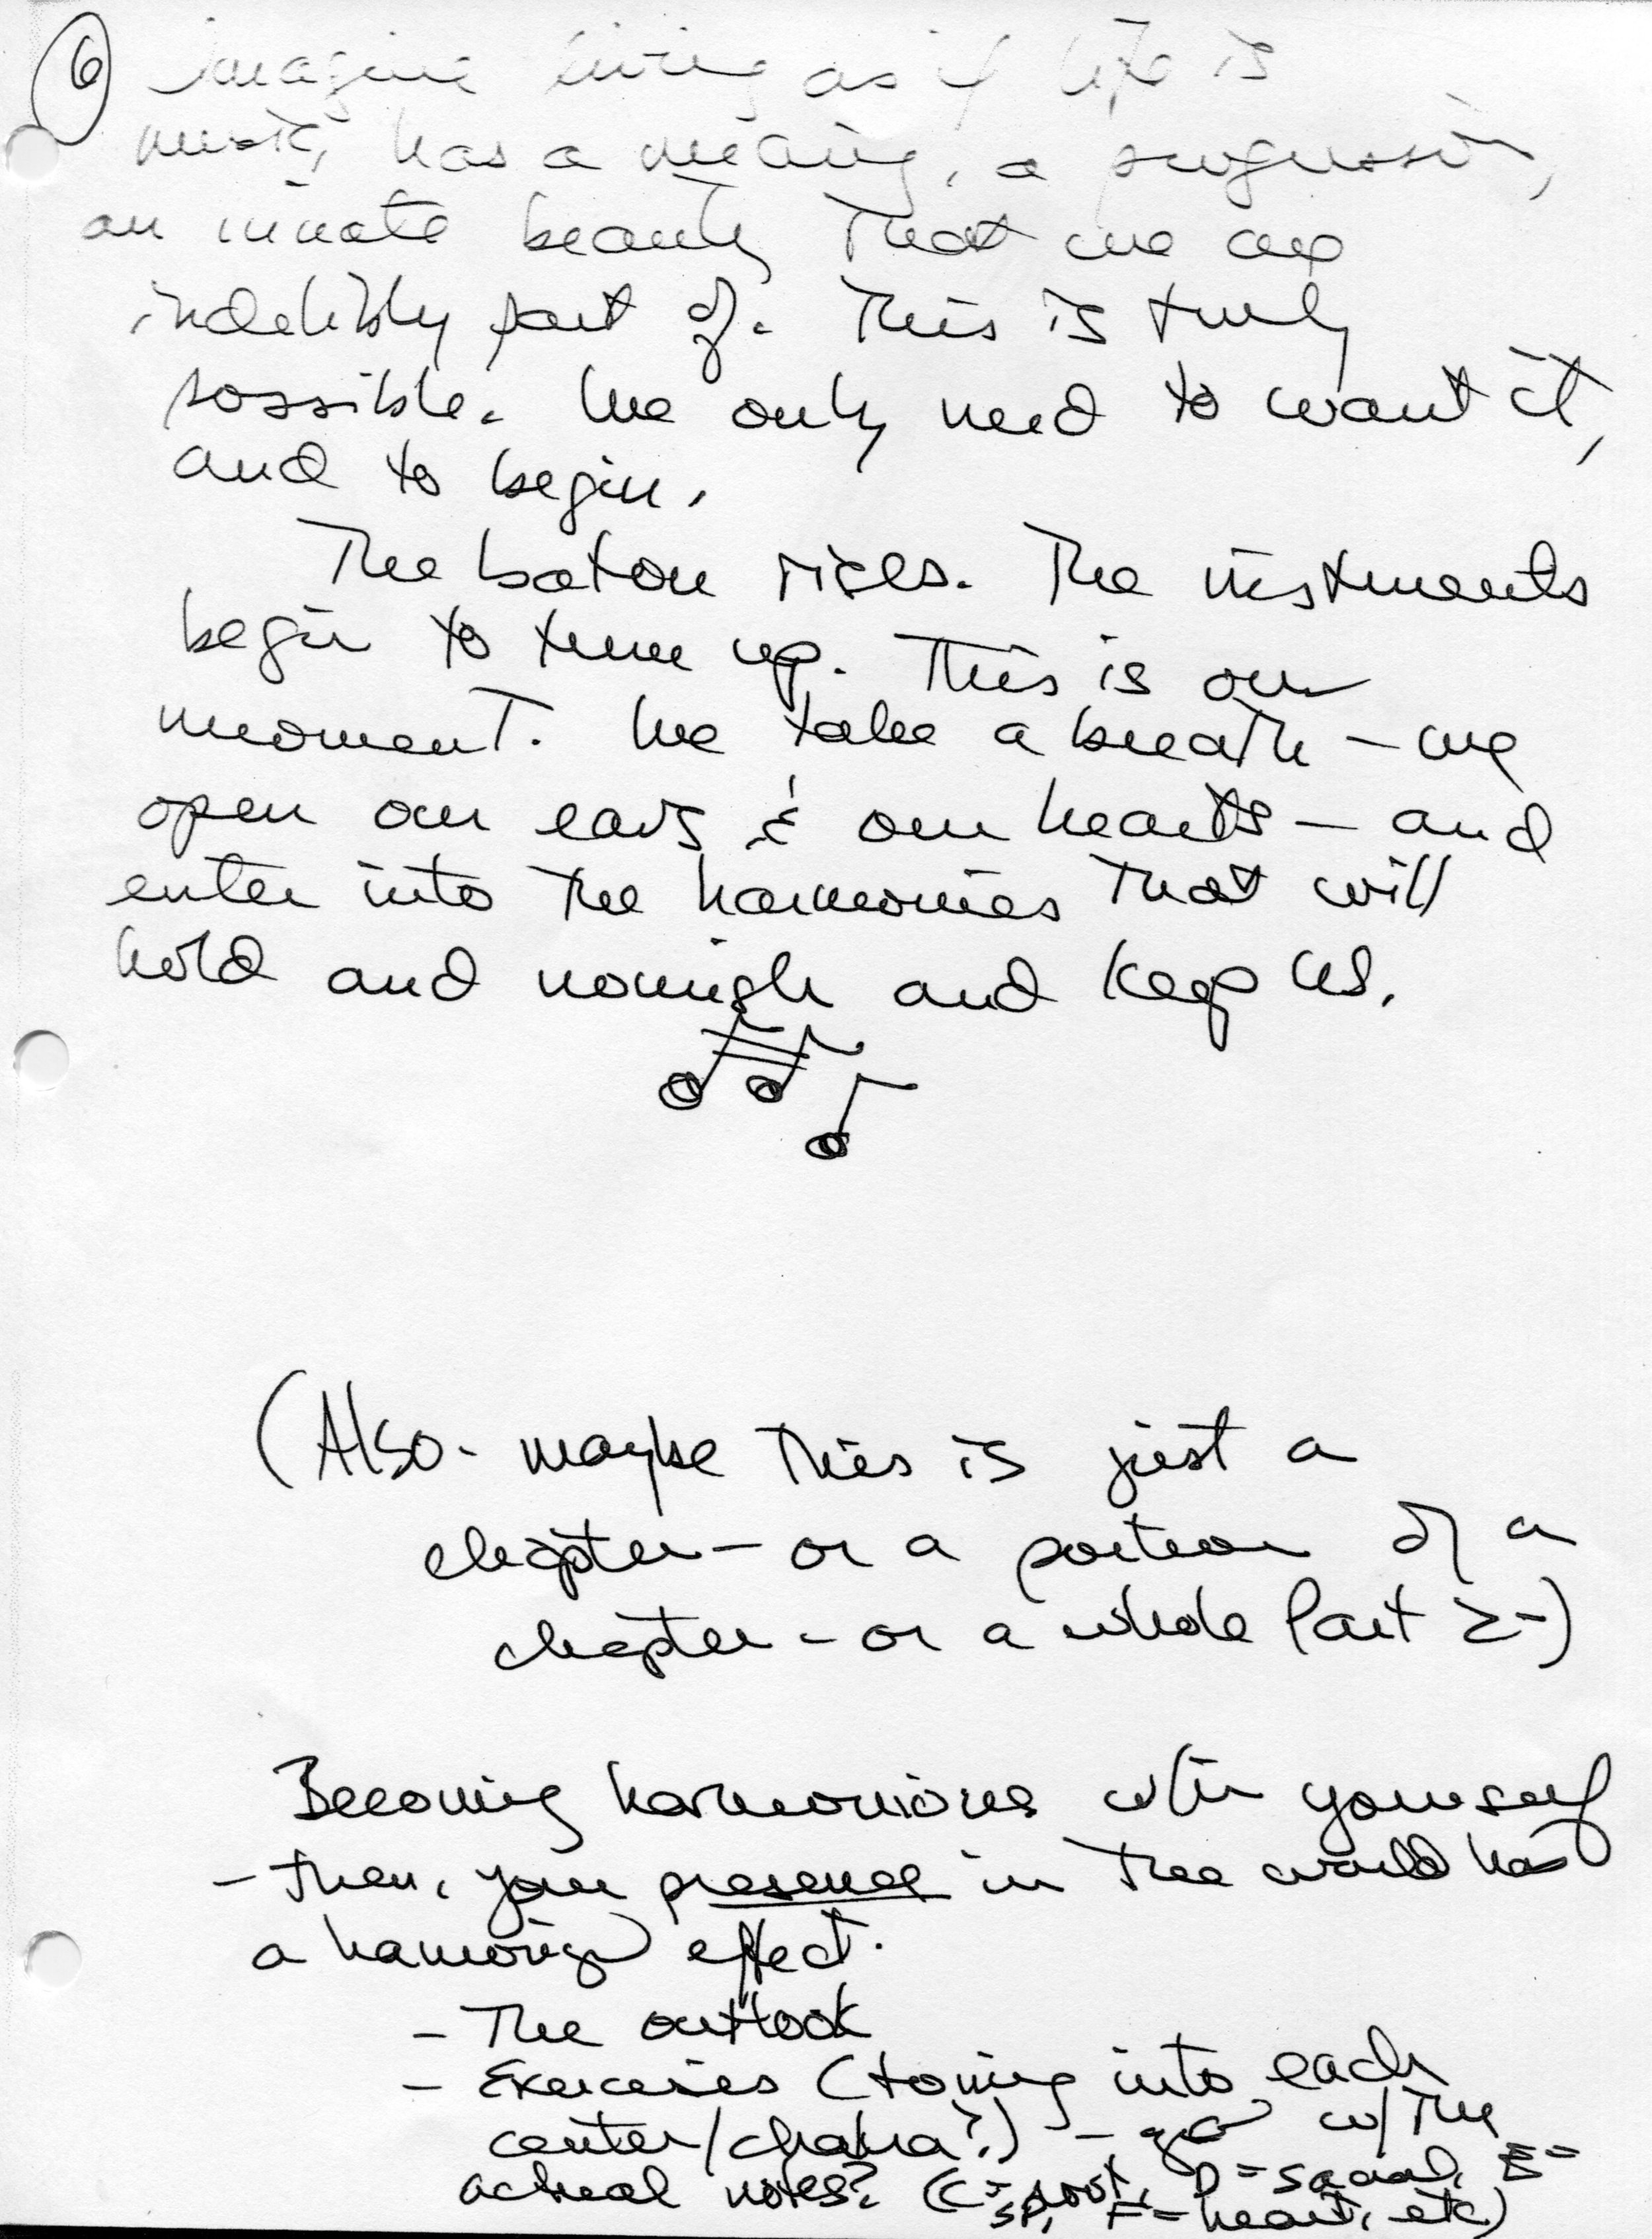 6 imagine living as if life is
music, has a meaning, a progression,
an innate beauty that we are
indelibly part of. This is truly
possible. We only need to want it,
and to begin.
The baton rises. The instruments
begin to tune up. This is our
moment. We take a breath – we
open our ears & our hearts – and
enter into the harmonies that will
hold and nourish and keep us.
(Also - maybe this is just a
chapter – or a portion of a
chapter – or a whole Part 2 -)
Becoming harmonious w/in yourself
– then, your presence in the world has
a harmonizing effect.
– The outlook
– Exercises (toning into each
center/chakra?) – go w/ the
actual notes? (C = root, D = sacral, E =
sp, F = heart, etc)